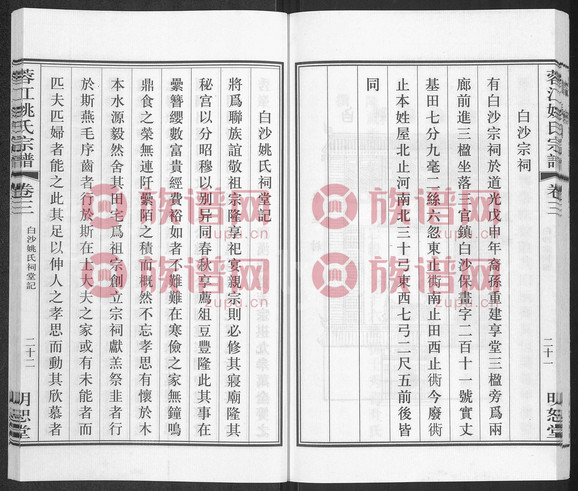 蓉江姚氏宗譜
卷三
二十一
明恕堂
白沙宗祠
有白沙宗祠於道光戊申年裔孫重建享堂三楹旁爲兩
廊前進三楹坐落上官鎮白沙保畫字二百十一號實丈
基田七分九毫二絲六忽東止衖南止田西止衖今廢衖
止本姓屋北止河南北三十弓東西七弓二尺五前後皆
同
白沙姚氏祠堂記
將爲聯族誼敬祖宗隆享祀宴親宗則必修其寢廟隆其
秘宮以分昭穆以別异同春秋享薦俎豆豐隆此其事在
纍簪纓數富貴經費裕如者不難難在寒儉之家無鐘鳴
鼎食之榮無連阡累陌之積而概然不忘孝思有懷於木
本水源毅然舍其田宅爲祖宗創立宗祠獻羔祭韭者行
於斯燕毛序齒者行於斯在上大夫之家或有未能者而
匹夫匹婦者能之此其足以伸人之孝思而動其欣慕者
蓉江姚氏宗譜
卷三
白沙姚氏祠堂記
二十二
明恕堂
族谱网
zupu.cn
族谱网
zupu.cn
族谱网
zupu.cn
族谱网
zupu.cn